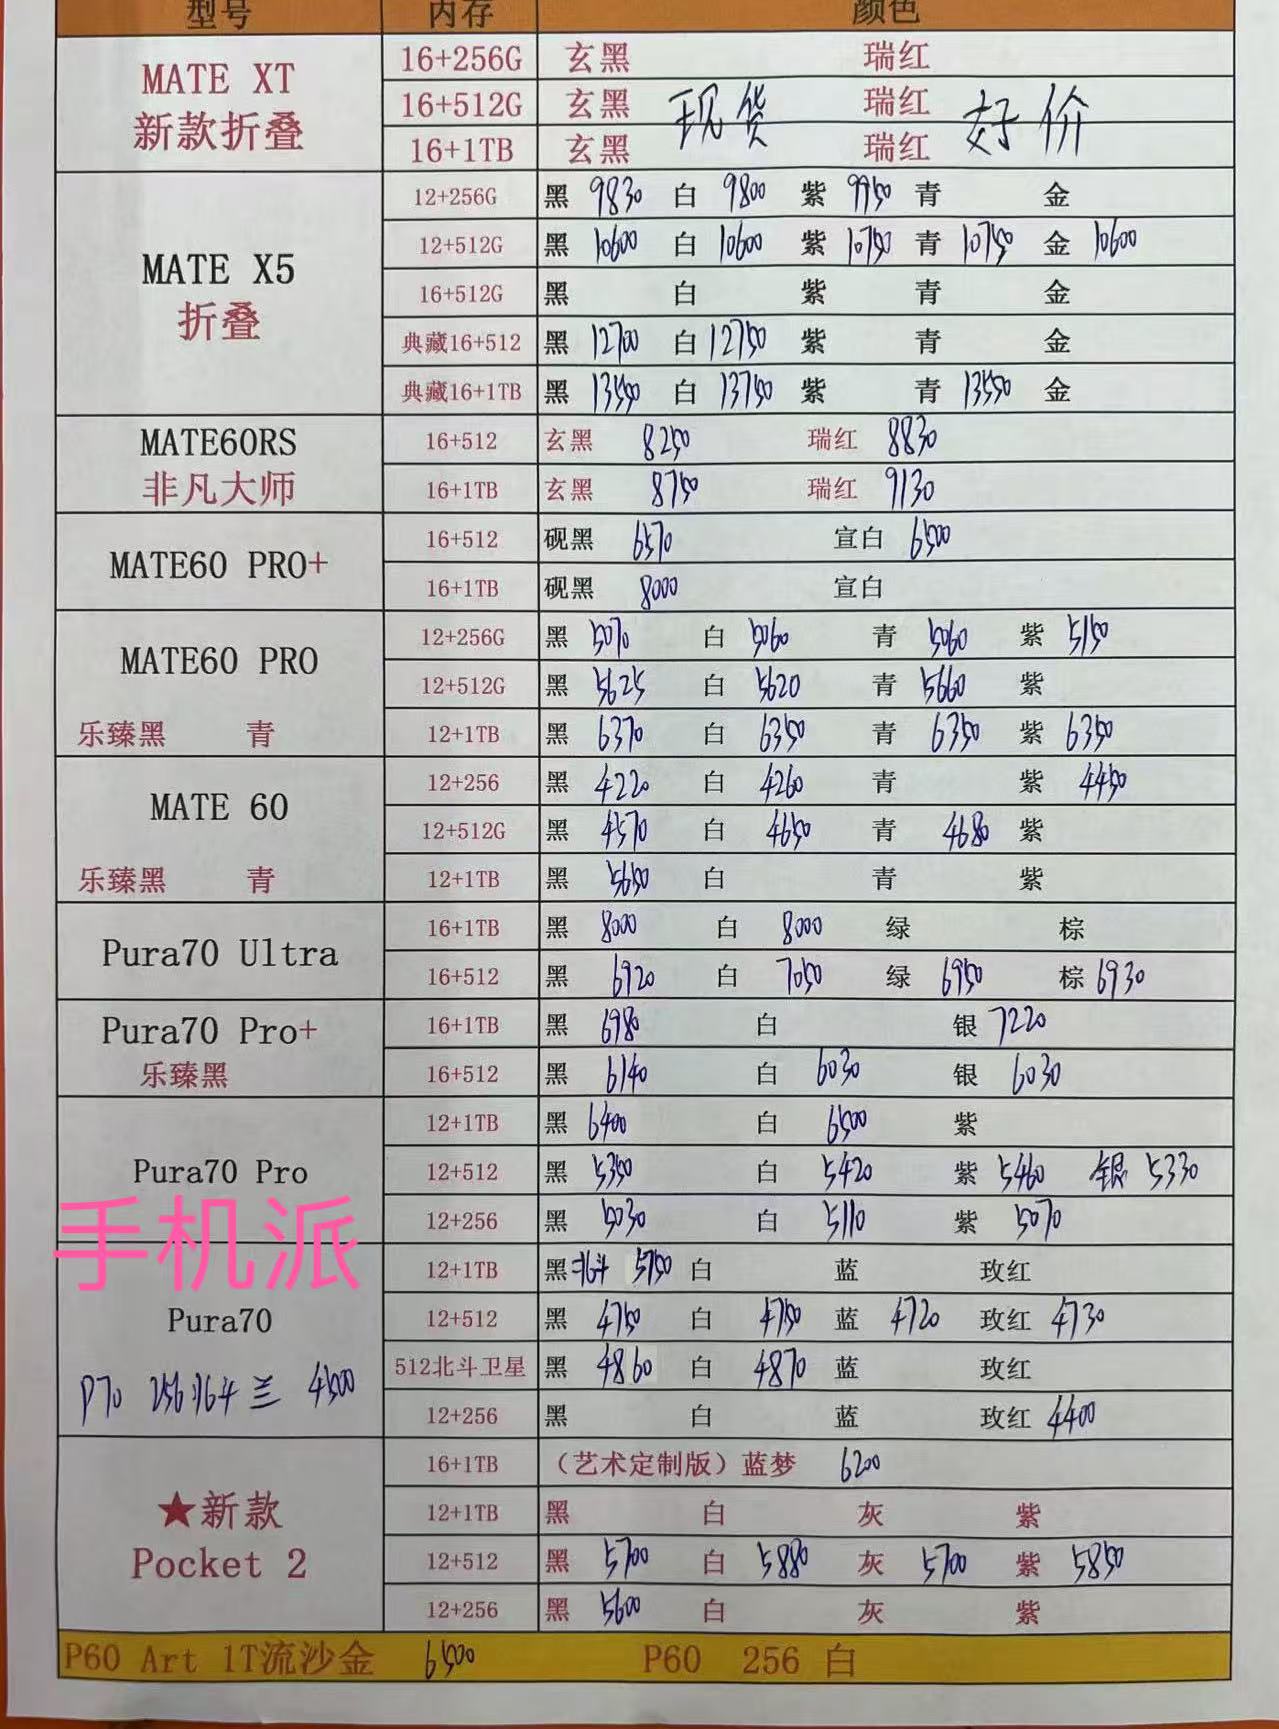 型号 内存 颜色
MATE XT 新款折叠
16+256G 玄黑 瑞红
16+512G 玄黑 现货 瑞红 好价
16+1TB 玄黑 瑞红
MATE X5 折叠
12+256G 黑 9830 白 9800 紫 9950 青 金
12+512G 黑 10600 白 10600 紫 10750 青 10750 金 10600
16+512G 黑 白 紫 青 金
典藏16+512 黑 12700 白 12750 紫 青 金
典藏16+1TB 黑 13550 白 13750 紫 青 13550 金
MATE60RS 非凡大师
16+512 玄黑 8250 瑞红 8830
16+1TB 玄黑 8750 瑞红 9130
MATE60 PRO+
16+512 砚黑 6570 宣白 6500
16+1TB 砚黑 8000 宣白
MATE60 PRO
乐臻黑 青
12+256G 黑 5070 白 5060 青 5060 紫 5150
12+512G 黑 5625 白 5620 青 5660 紫
12+1TB 黑 6370 白 6350 青 6350 紫 6350
MATE 60
乐臻黑 青
12+256 黑 4220 白 4260 青 紫 4450
12+512G 黑 4570 白 4650 青 4680 紫
12+1TB 黑 5650 白 青 紫
Pura70 Ultra
16+1TB 黑 8000 白 8000 绿 棕
16+512 黑 6920 白 7050 绿 6950 棕 6930
Pura70 Pro+
乐臻黑
16+1TB 黑 6980 白 银 7220
16+512 黑 6140 白 6030 银 6030
Pura70 Pro
12+1TB 黑 6400 白 6500 紫
12+512 黑 5350 白 5420 紫 5460 银 5330
12+256 黑 5030 白 5110 紫 5070
手机派
Pura70
P70 256北斗 兰 4500
12+1TB 黑 北斗 5750 白 蓝 玫红
12+512 黑 4750 白 4750 蓝 4720 玫红 4730
512北斗卫星 黑 4860 白 4870 蓝 玫红
12+256 黑 白 蓝 玫红 4400
★新款
Pocket 2
16+1TB （艺术定制版）蓝梦 6200
12+1TB 黑 白 灰 紫
12+512 黑 5700 白 5880 灰 5700 紫 5850
12+256 黑 5600 白 灰 紫
P60 Art 1T流沙金 6500 P60 256 白